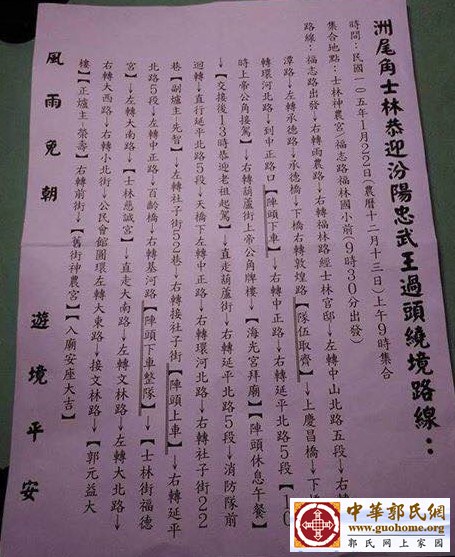 洲尾角士林恭迎汾陽忠武王過頭繞境路線：
時間：民國一○五年1月22日(農曆十二月十三日)上午9時集合
集合地點：士林神農宮/福志路福林國小前(9時30分出發)
路線：福志路出發→右轉雨農路→右轉福林路經士林官邸→左轉中山北路五段→右轉
潭路→左轉承德路→承德橋→下橋右轉敦煌路【隊伍取齊】→上慶昌橋→下橋
轉環河北路→到中正路口【陣頭下車】→右轉中正路→右轉延平北路5段【10
時上帝公角接駕】→右轉葫蘆街上帝公角牌樓→【海光宮拜廟】【陣頭休息午餐】
→【交接後3時恭迎老祖起駕】→直走葫蘆街→右轉延平北路5段→消防隊前
迴轉→直行延平北路5段→天橋下左轉中正路→右轉環河北路→右轉社子街22
巷【副爐主–先智】→左轉社子街52巷→右轉接社子街【陣頭上車】→右轉延平
北路5段→左轉中正路→百齡橋→右轉基河路【陣頭下車整隊】→【士林街福德
宮】→左轉大南路→【士林慈諴宮】→直走大南路→左轉文林路→左轉大北路→
右轉大西路→右轉小北街→公民會館圍環左轉大東路→接文林路→【郭元益大
樓】【正爐主–榮壽】右轉前街→【舊街神農宮】【入廟安座大吉】
風雨免朝　遊境平安
中華郭氏網
www.guohome.org
郭氏网上家园